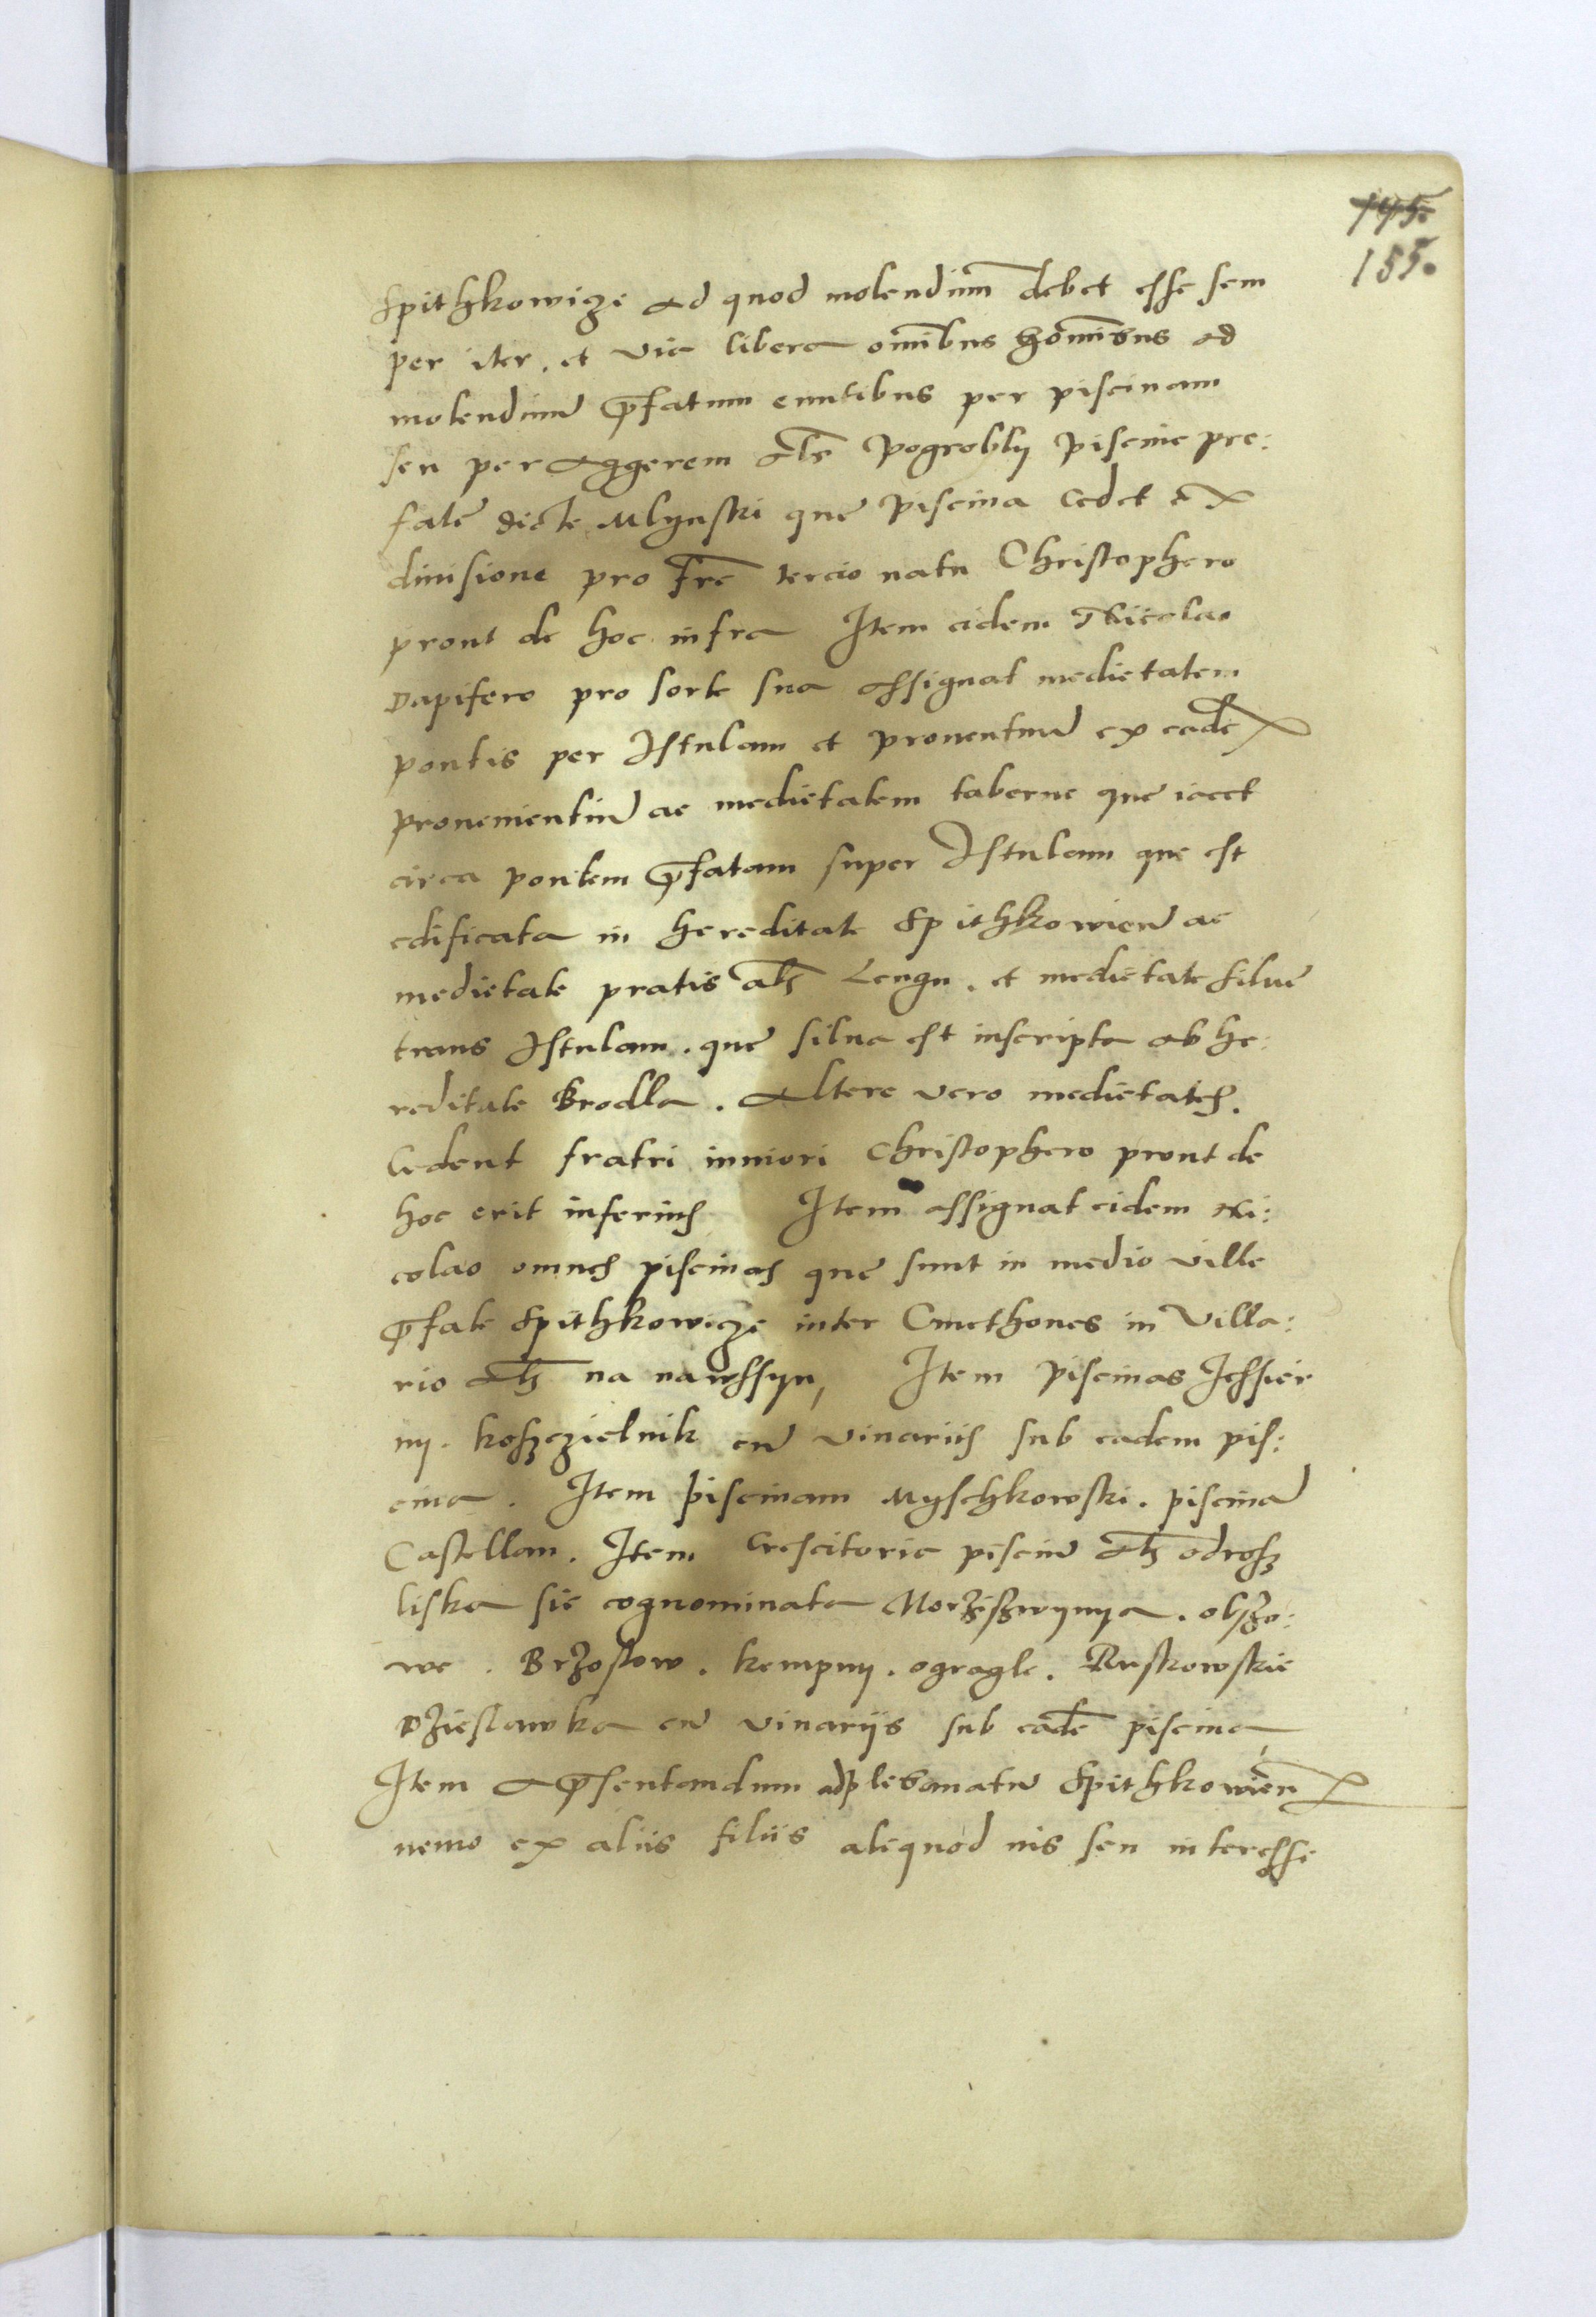 145.
155.
Spithkowicze ad quod molendinum̄ debet esse sem
per iter . et via libera om̄ibus hom̄ibus ad
molendinū p̄fatum euntibus per piscinam
seu per aggerem als̄ pogroblij piscine pre:
fate dicte Mlynski que piscina cedet ex
diuisione pro fr̄e tercio natu Christophero
prout de hoc infra Item eidem Nicolao
Dapifero pro sorte sua assignat medietatem
pontis per Istulam et prouentuū ex eadē
prouenientiū ac medietatem taberne que iacet
circa pontem p̄fatam super Istulam que est
edificata in hereditate Spithkowien̄ ac
medietate pratis als̄ Lengu . et medietate silue
trans Istulam . que silua est inscripta ab he:
reditate Brodla . Altere vero medietates .
Cedent fratri iuniori Christophero prout de
hoc erit inferius Item assignat eidem Ni:
colao omnes piscinas que sunt in medio ville
p̄fate Spithkowicze inter Cmethones in Villa:
rio als̄ na nawssyu, Item piscinas Jessier
ny . koszczielnik cū vinariis sub eadem pis:
cina . Item piscinam Myschkowski . piscinā
Castellan . Item Crescitorie piscinē als̄ odrosz
liska sic cognominata Morziszwynya . olszo:
we . Brzostow . kempny . ogragle . Ruskowskie
Dzieslawka cū vinariis sub eadē piscina,
Item ap̄sentandum ad plebanatū Spithkowien̄
nemo ex aliis filiis aliquod ius seu interesse